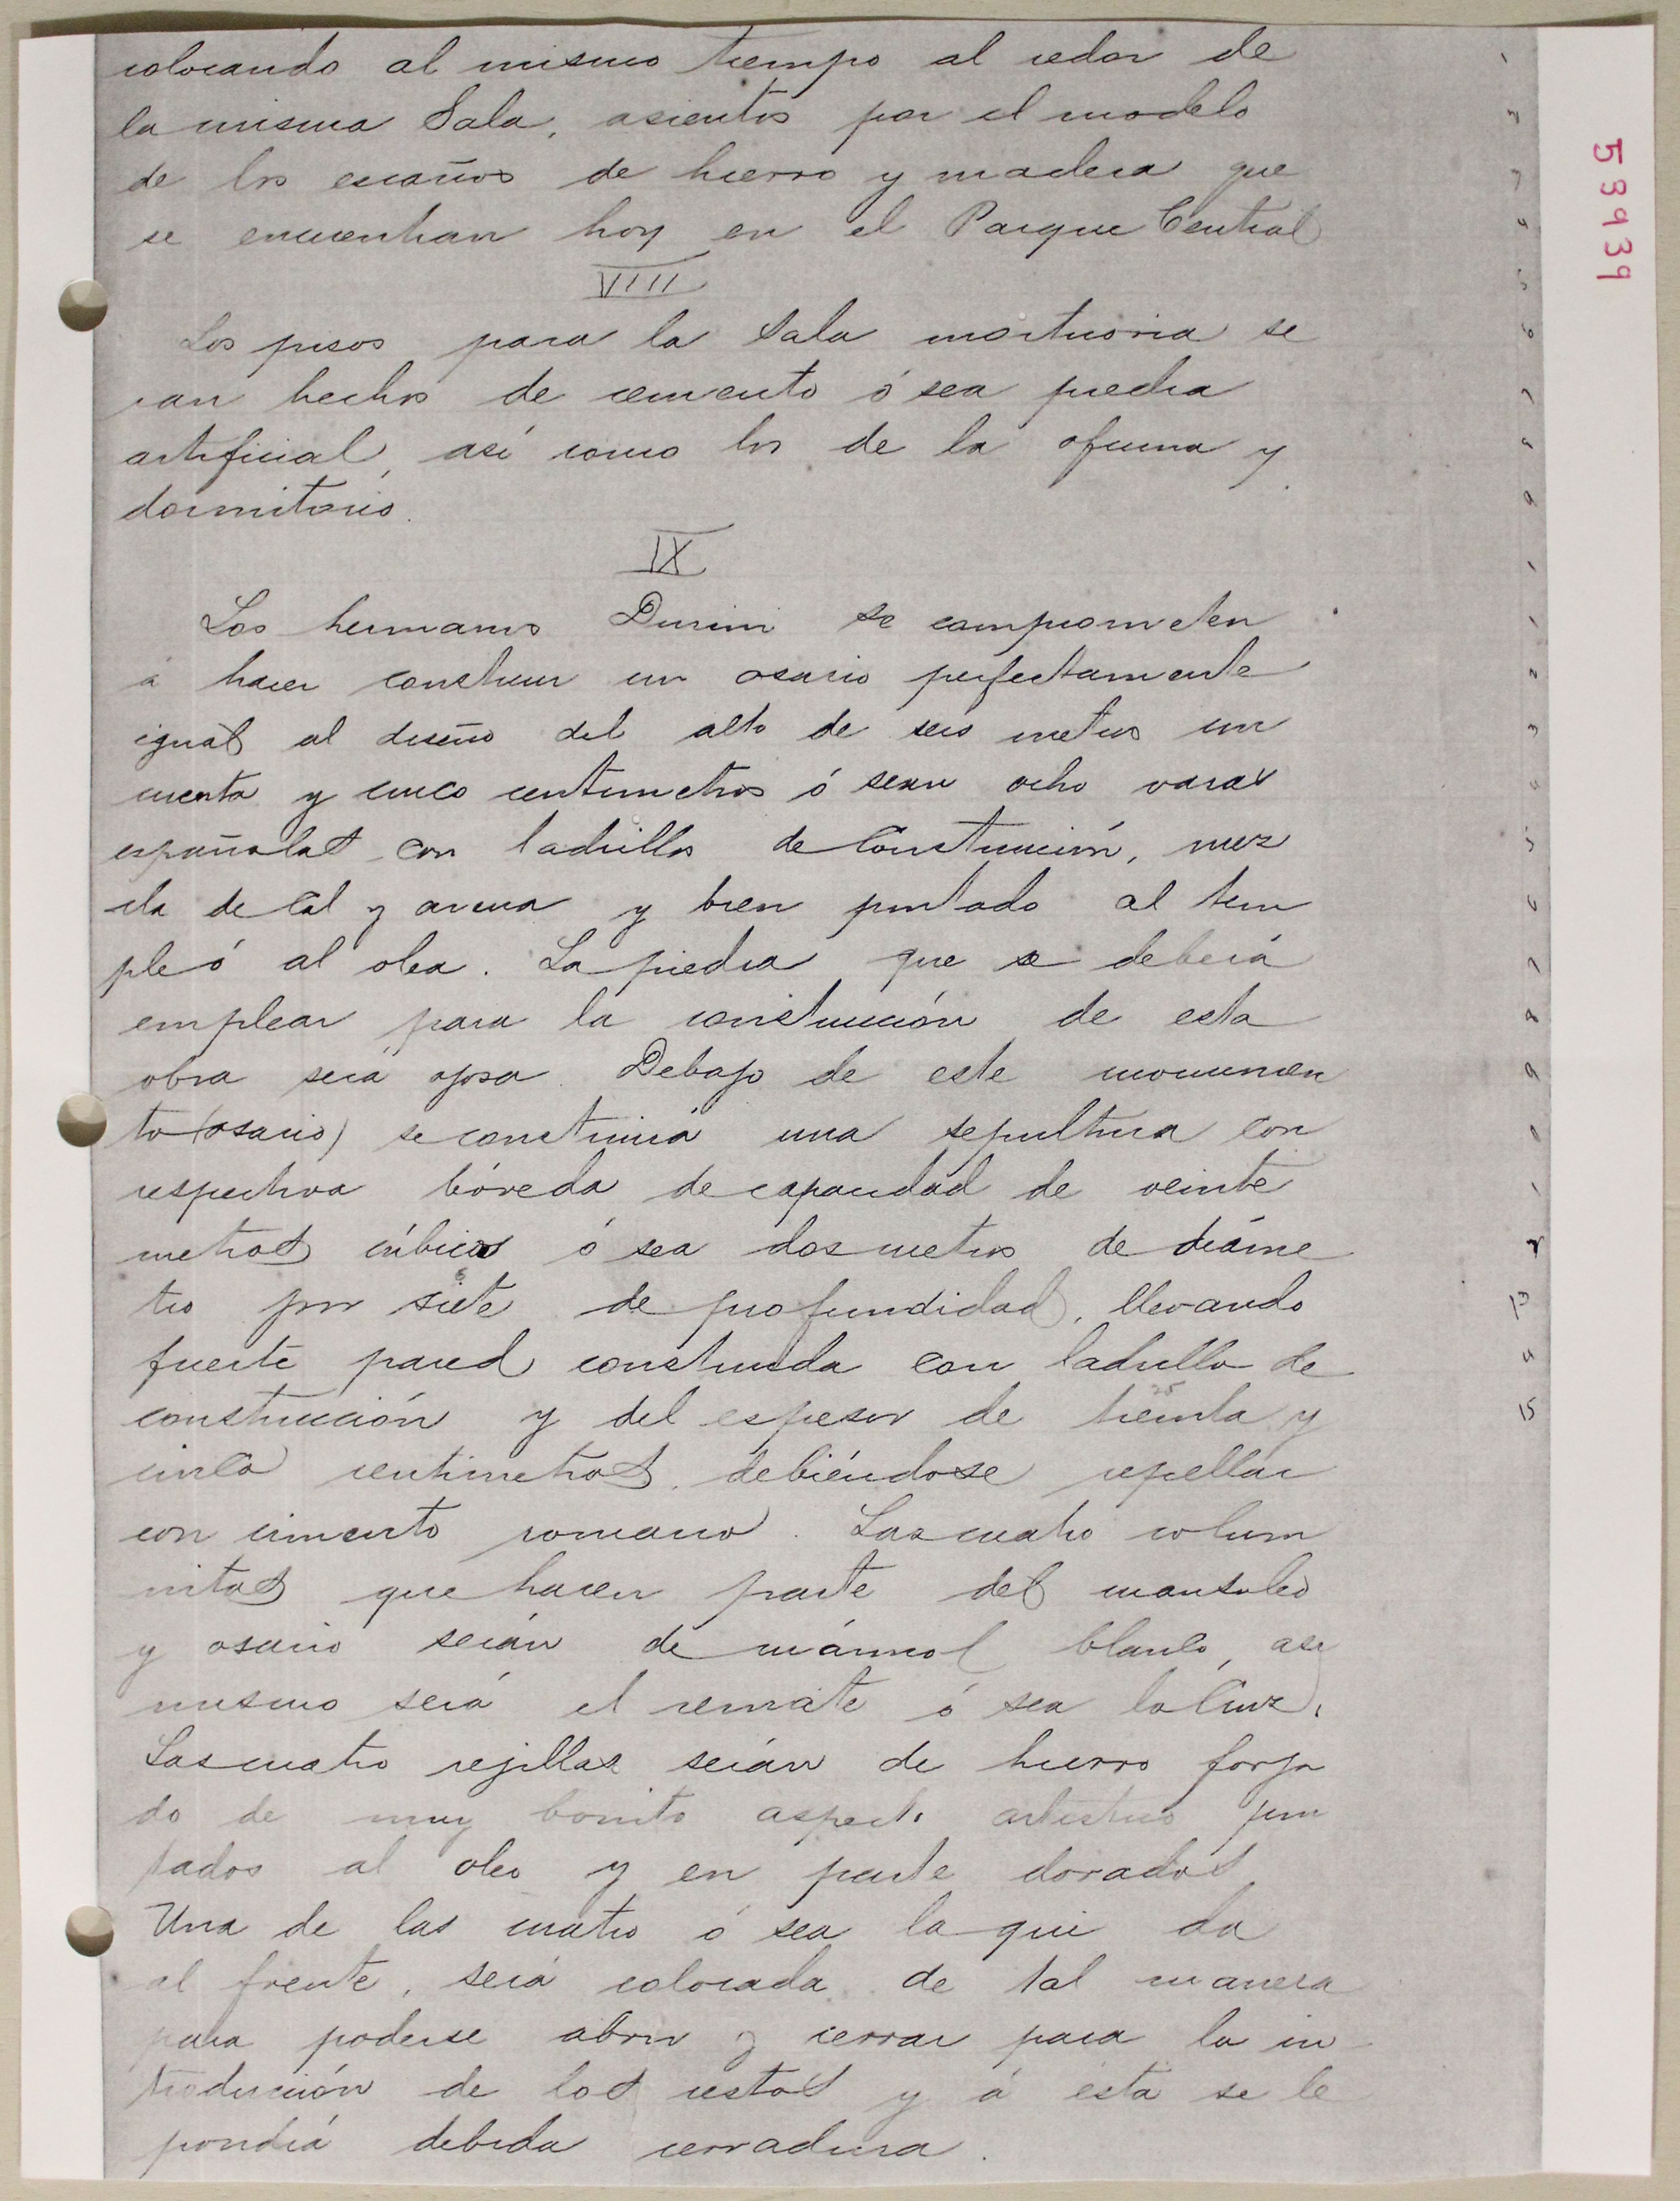 colocando al mismo tiempo al redor de
la misma Sala, asientos por el modelo
de los escaños de hierro y madera que
se encuentran hoy en el Parque Central
VIII
Los pisos para la Sala mortuoria se
ran hechos de cemento ó sea piedra
artificial, así como los de la oficina y
dormitorio.
IX
Los hermanos Durini se comprometen
á hacer construir un osario perfectamente
igual al diseño del alto de seis metros cin
cuenta y cinco centimetros ó sean ocho varas
españolas con ladrillos de Construcción, mez
cla de Cal y arena y bien pintado al tem
ple ó al olea. La piedra que se deberá
emplear para la construcción de esta
obra será ojosa. Debajo de este monumen
to (osario) se construirá una sepultura con
respectiva bóveda de capacidad de veinte
metros cúbicos ó sea dos metros de diáme
tro por siete de profundidad, llevando
fuerte pared construida con ladrillo de
construcción y del espesor de treinta y
cinco centimetros, debiéndose repellar
con cimento romano. Las cuatro colum
nitas que hacen parte del mausoleo
y osario serán de mármol blanco, asi
mismo será el remate ó sea la Cruz.
Las cuatro rejillas serán de hierro forja
do de muy bonito aspecto artistico pin
tados al oleo y en parte dorados
Una de las cuatro ó sea la que da
al frente, será colocada de tal manera
para poderse abrir y cerrar para la in
troducción de los restos y á esta se le
pondrá debida cerradura.
53939